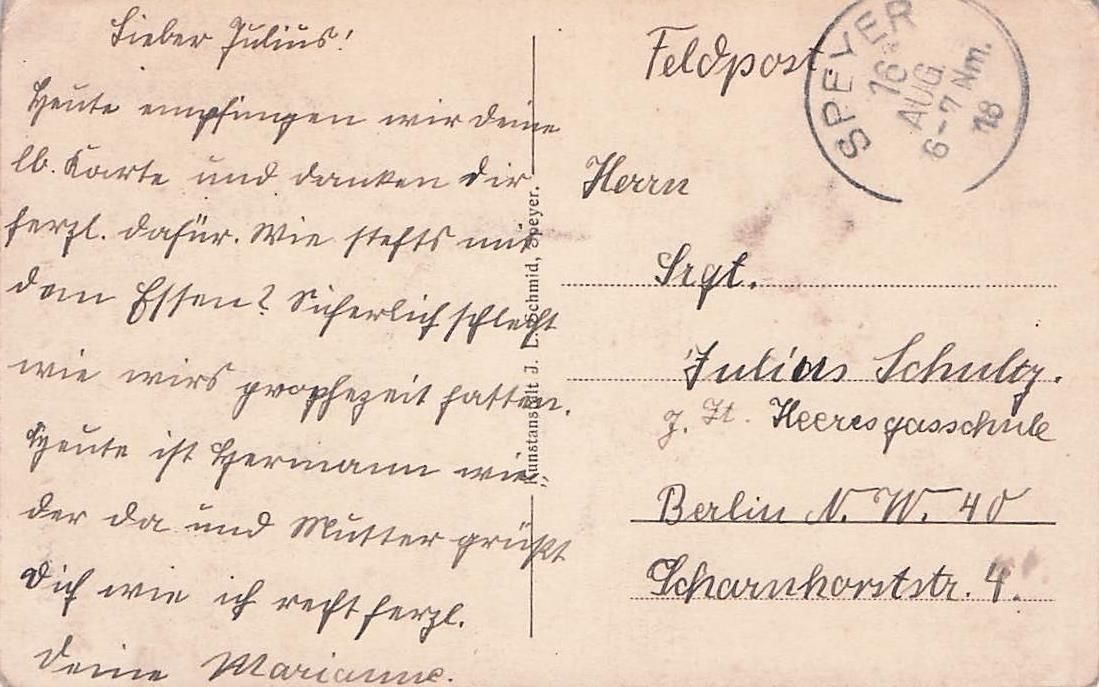 Lieber Julius!
Heute empfingen wir deine
lb. Karte und danken dir
herzl. dafür. Wie stehts mit
dem Essen? Sicherlich schlecht
wie wirs prophezeit hatten.
Heute ist Hermann wie-
der da und Mutter grüßt
Dich wie ich recht herzl.
deine Marianne.
Kunstanstalt J. L. Schmid, Speyer.
Feldpost.
SPEYER
16
AUG.
6-7 Nm.
18
Herrn
Srgt.
Julius Schultz.
z. Zt. Heeresgasschule
Berlin N. W. 40
Scharnhorststr. 4.